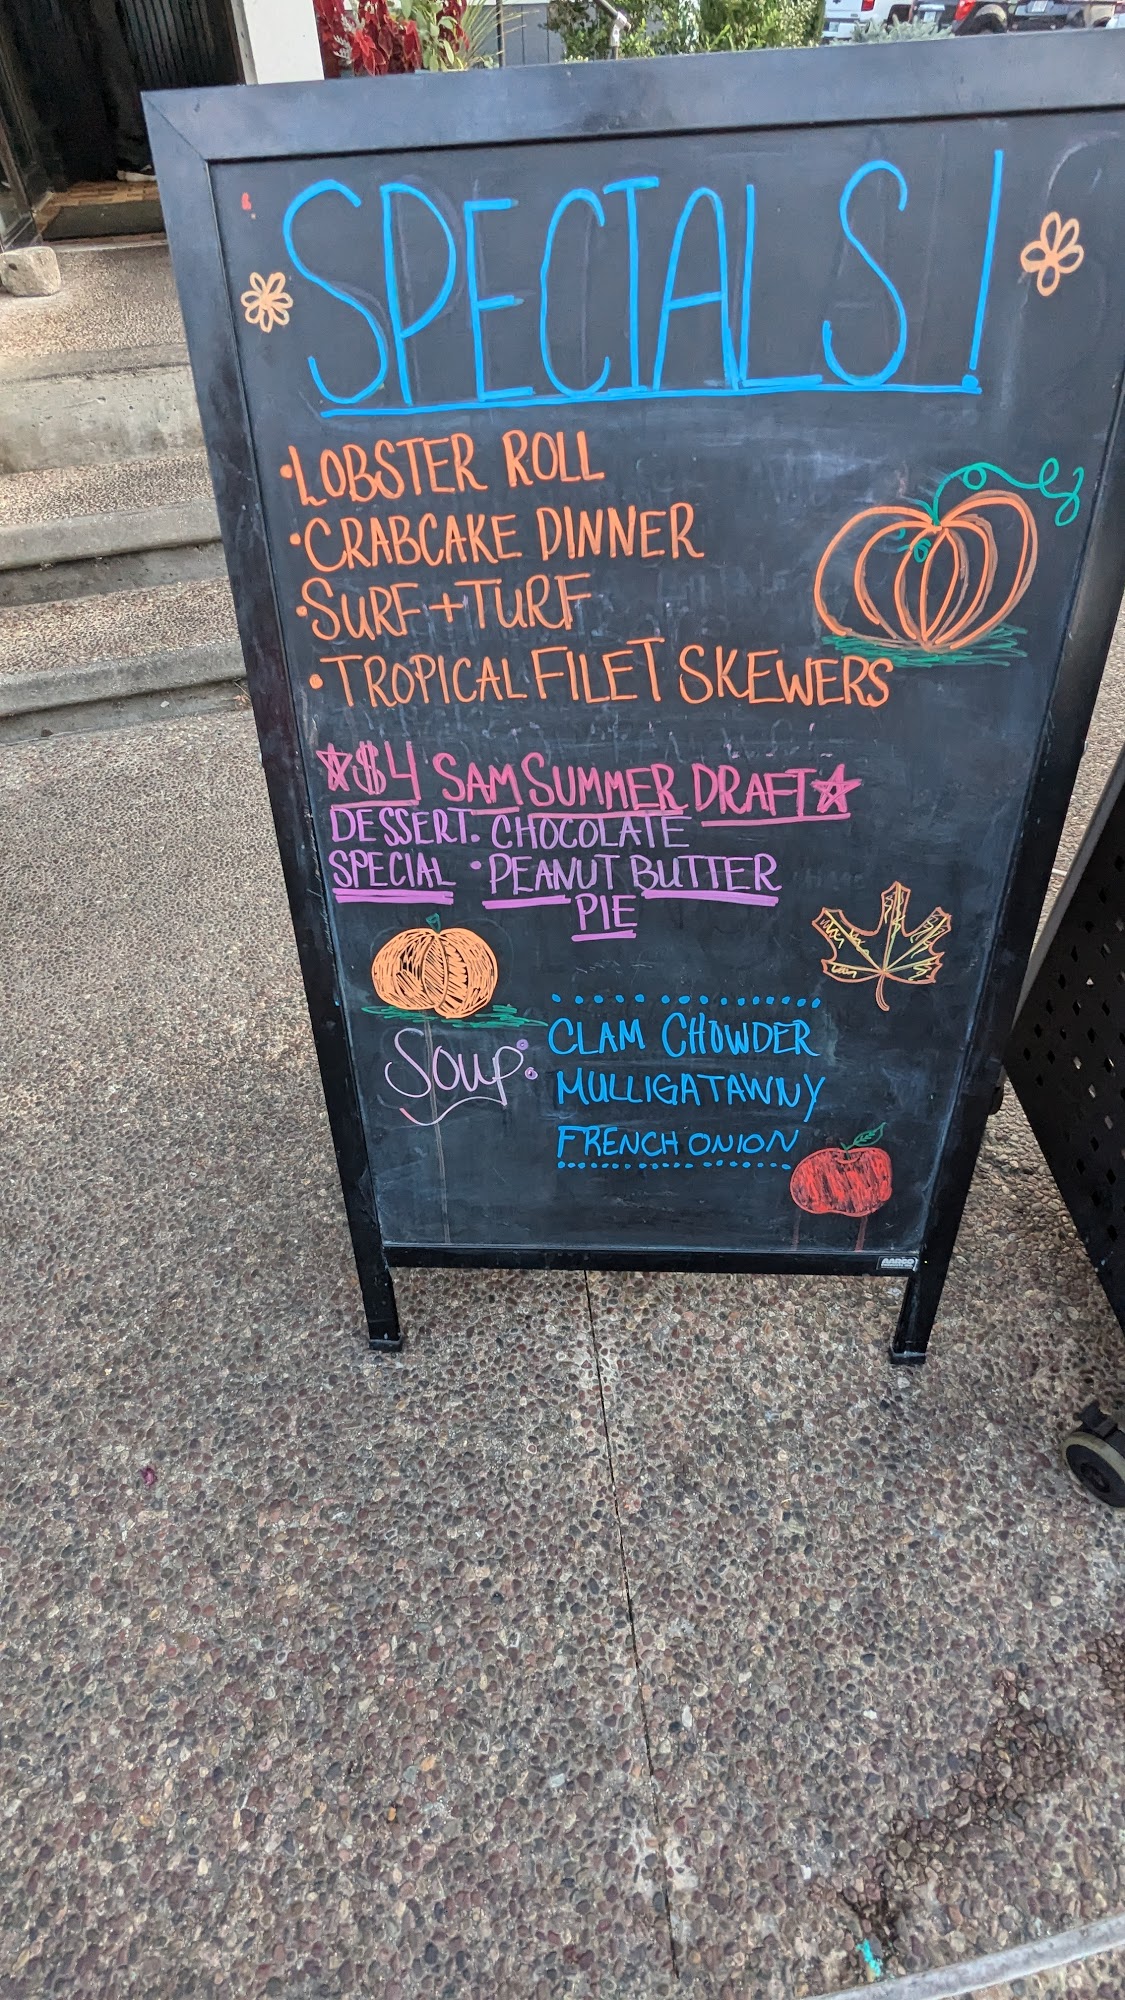 SPECIALS!
•LOBSTER ROLL
•CRABCAKE DINNER
•SURF+TURF
•TROPICAL FILET SKEWERS
$4 SAM SUMMER DRAFT
DESSERT • CHOCOLATE
SPECIAL • PEANUT BUTTER
PIE
Soup:
CLAM CHOWDER
MULLIGATAWNY
FRENCH ONION
AARCO